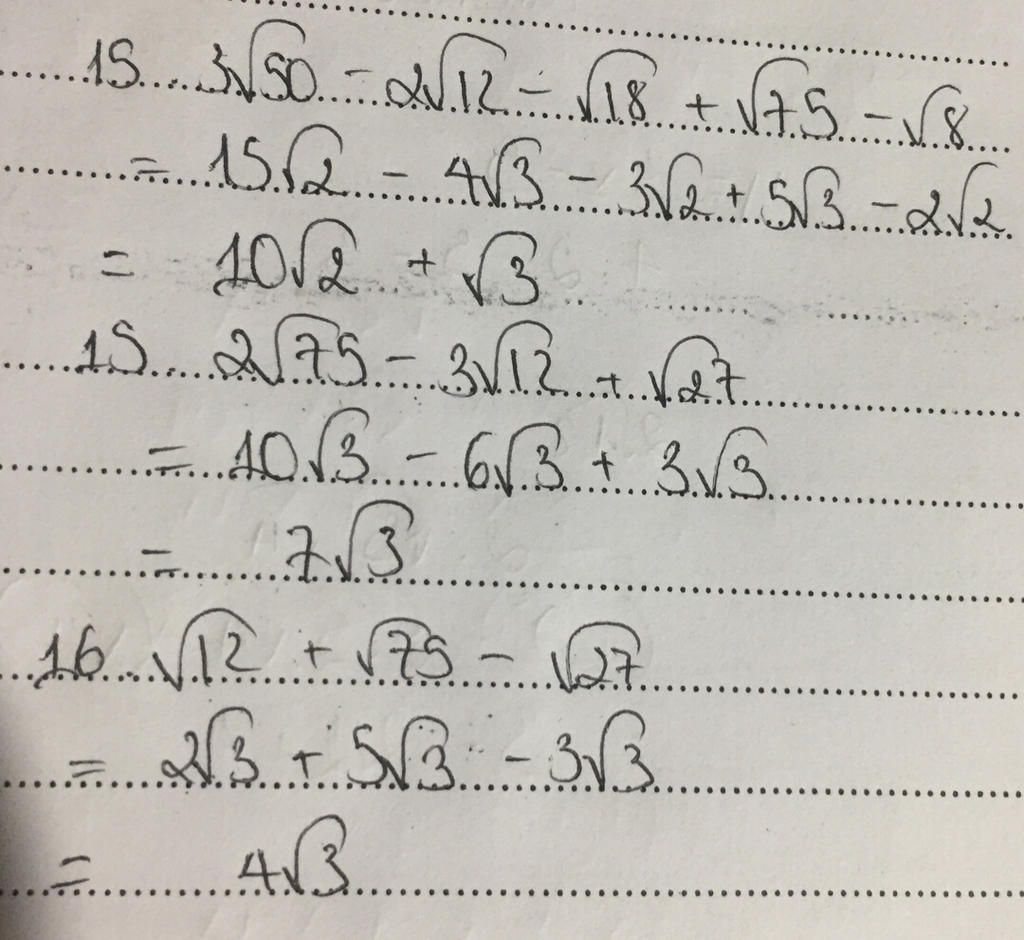 15 3√50 - 2√12 - √18 + √75 - √8
= 15√2 - 4√3 - 3√2 + 5√3 - 2√2
= 10√2 + √3
15 2√75 - 3√12 + √27
= 10√3 - 6√3 + 3√3
= 7√3
16 √12 + √75 - √27
= 2√3 + 5√3 - 3√3
= 4√3